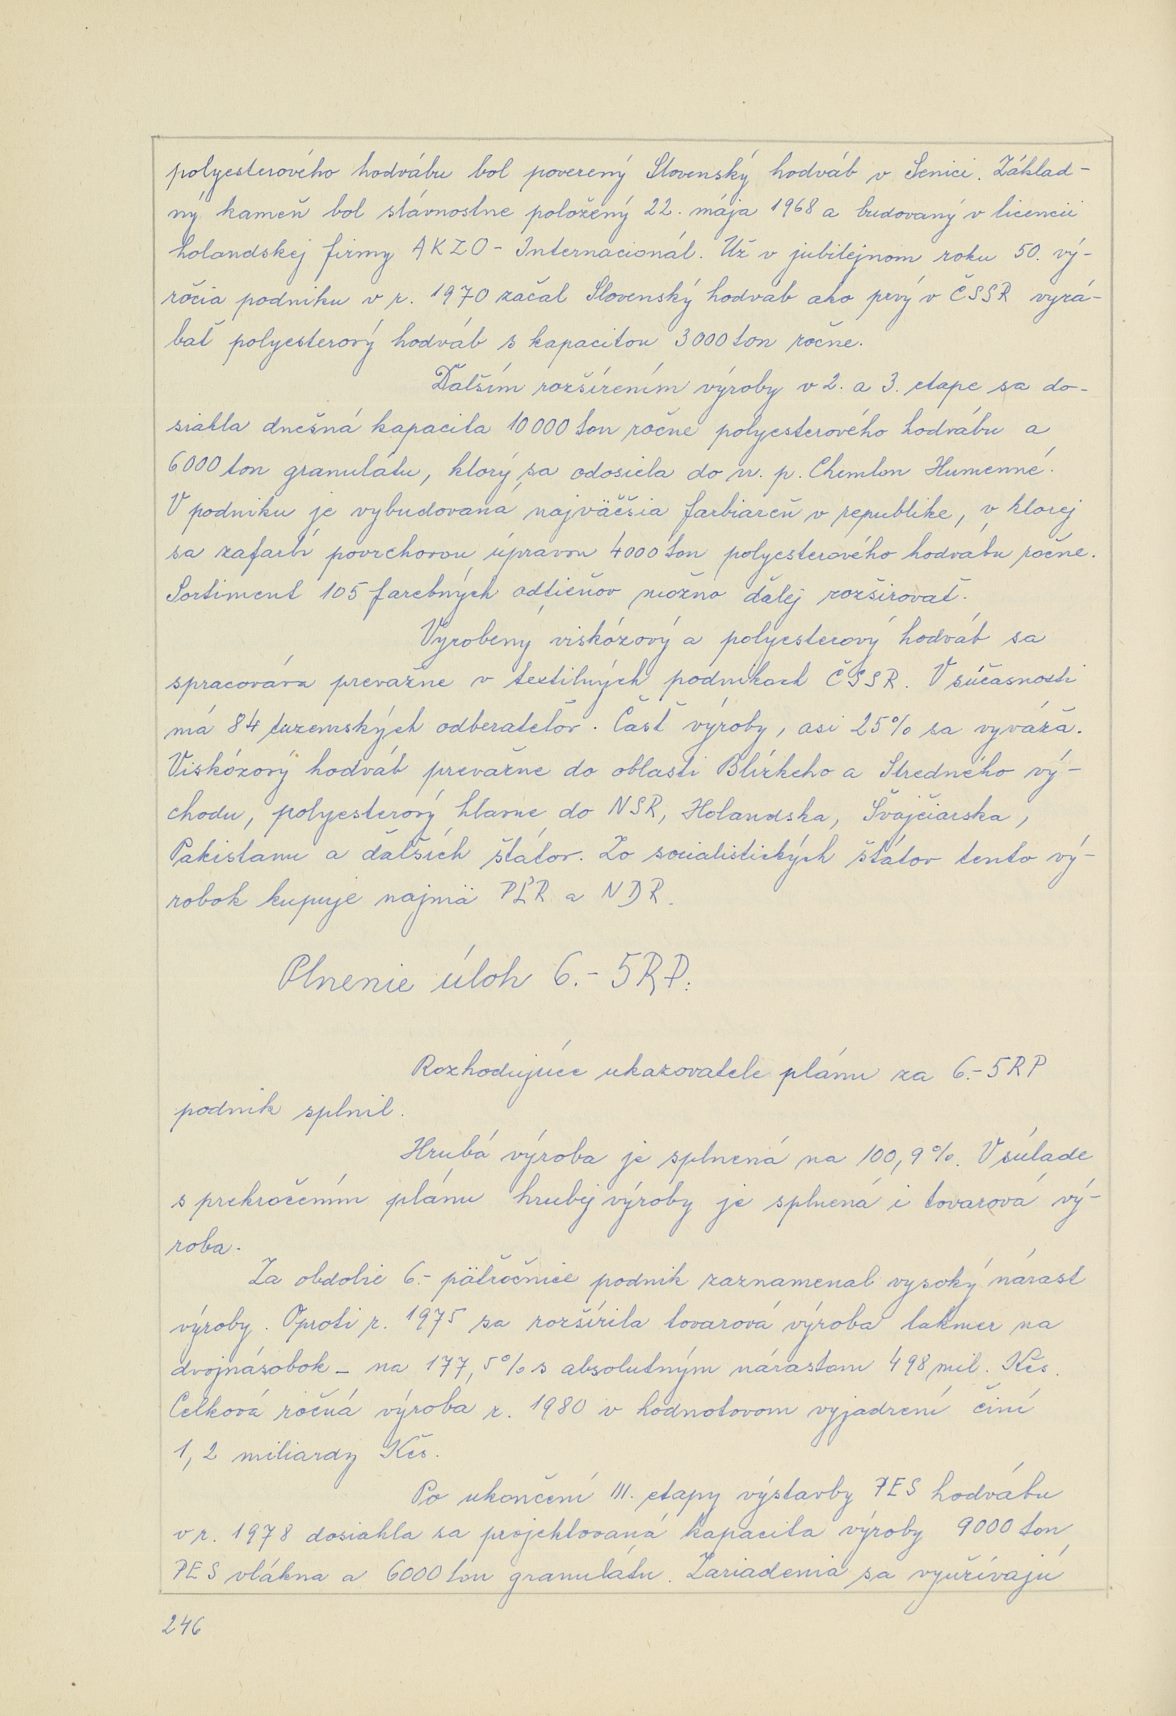 polyesterového hodvábu bol poverený Slovenský hodváb v Senici. Základ-
ný kameň bol slávnostne položený 22. mája 1968 a budovaný v licencii
holandskej firmy AKZO - Internacionál. Už v jubilejnom roku 50. vý-
ročia podniku v r. 1970 začal Slovenský hodváb ako prvý v ČSSR vyrá-
bať polyesterový hodváb s kapacitou 3000 ton ročne.
Ďalším rozšírením výroby v 2. a 3. etape sa do-
siahla dnešná kapacita 10 000 ton ročne polyesterového hodvábu a
6000 ton granulátu, ktorý sa odosiela do n. p. Chemlon Humenné.
V podniku je vybudovaná najväčšia farbiareň v republike, v ktorej
sa zafarbí povrchovou úpravou 4000 ton polyesterového hodvábu ročne.
Sortiment 105 farebných odtieňov možno ďalej rozširovať.
Vyrobený viskózový a polyesterový hodváb sa
spracováva prevažne v textilných podnikoch ČSSR. V súčasnosti
má 84 tuzemských odberateľov. Časť výroby, asi 25% sa vyváža.
Viskózový hodváb prevažne do oblasti Blízkeho a Stredného vý-
chodu, polyesterový hlavne do NSR, Holandska, Švajčiarska,
Pakistanu a ďalších štátov. Zo socialistických štátov tento vý-
robok kupuje najmä PĽR a NDR.
Plnenie úloh 6.- 5RP.
Rozhodujúce ukazovatele plánu za 6.-5RP
podnik splnil.
Hrubá výroba je splnená na 100,9%. V súlade
s prekročením plánu hrubej výroby je splnená i tovarová vý-
roba.
Za obdobie 6.- päťročnice podnik zaznamenal vysoký nárast
výroby. Oproti r. 1975 sa rozšírila tovarová výroba takmer na
dvojnásobok - na 177,5% s absolutným nárastom 498 mil. Kčs.
Celková ročná výroba r. 1980 v hodnotovom vyjadrení činí
1,2 miliardy Kčs.
Po ukončení III. etapy výstavby PES hodvábu
v r. 1978 dosiahla sa projektovaná kapacita výroby 9000 ton
PES vlákna a 6000 ton granulátu. Zariadenia sa využívajú
246